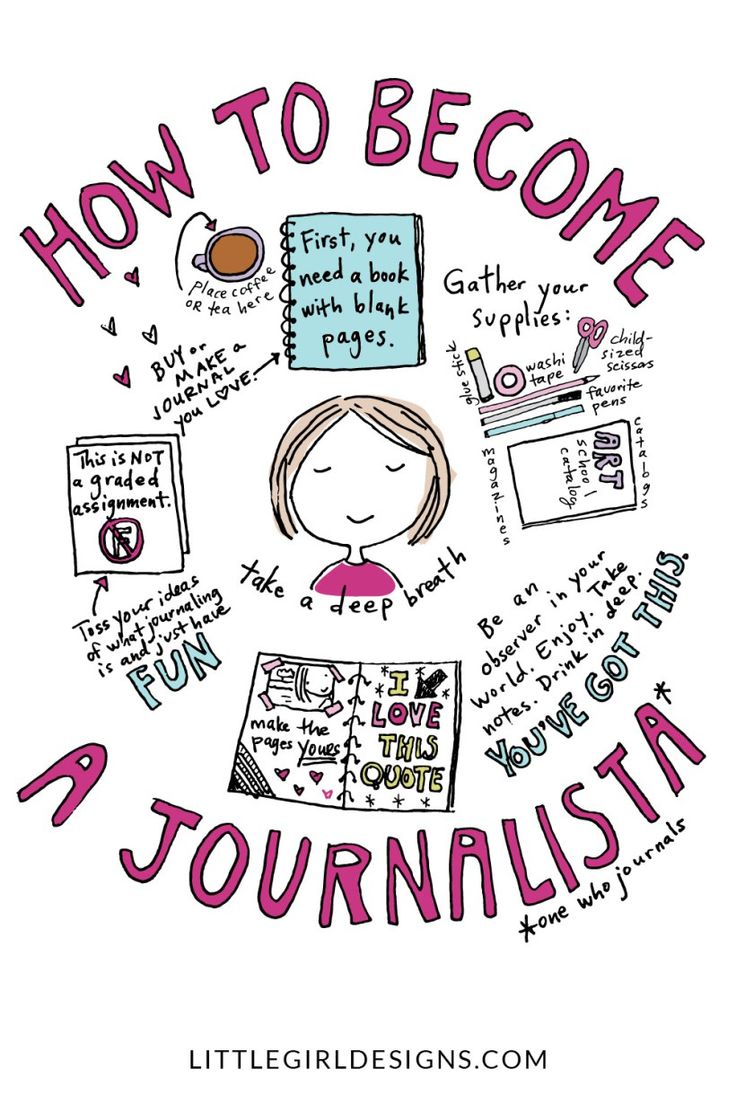 HOW TO BECOME
Place coffee
OR tea here
First, you
need a book
with blank
pages.
BUY or
MAKE A
JOURNAL
you LOVE.
Gather your
supplies:
glue stick
washi
tape
child-
sized
scissors
favorite
pens
magazines
ART
school
catalog
catalogs
This is NOT
a graded
assignment.
F
Toss your ideas
of what journaling
is and just have
FUN
take a deep breath
Be an
observer in your
world. Enjoy. Take
notes. Drink in deep.
YOU'VE GOT THIS.
make the
pages yours
I
LOVE
THIS
QUOTE
A JOURNALISTA*
*one who journals
LITTLEGIRLDESIGNS.COM